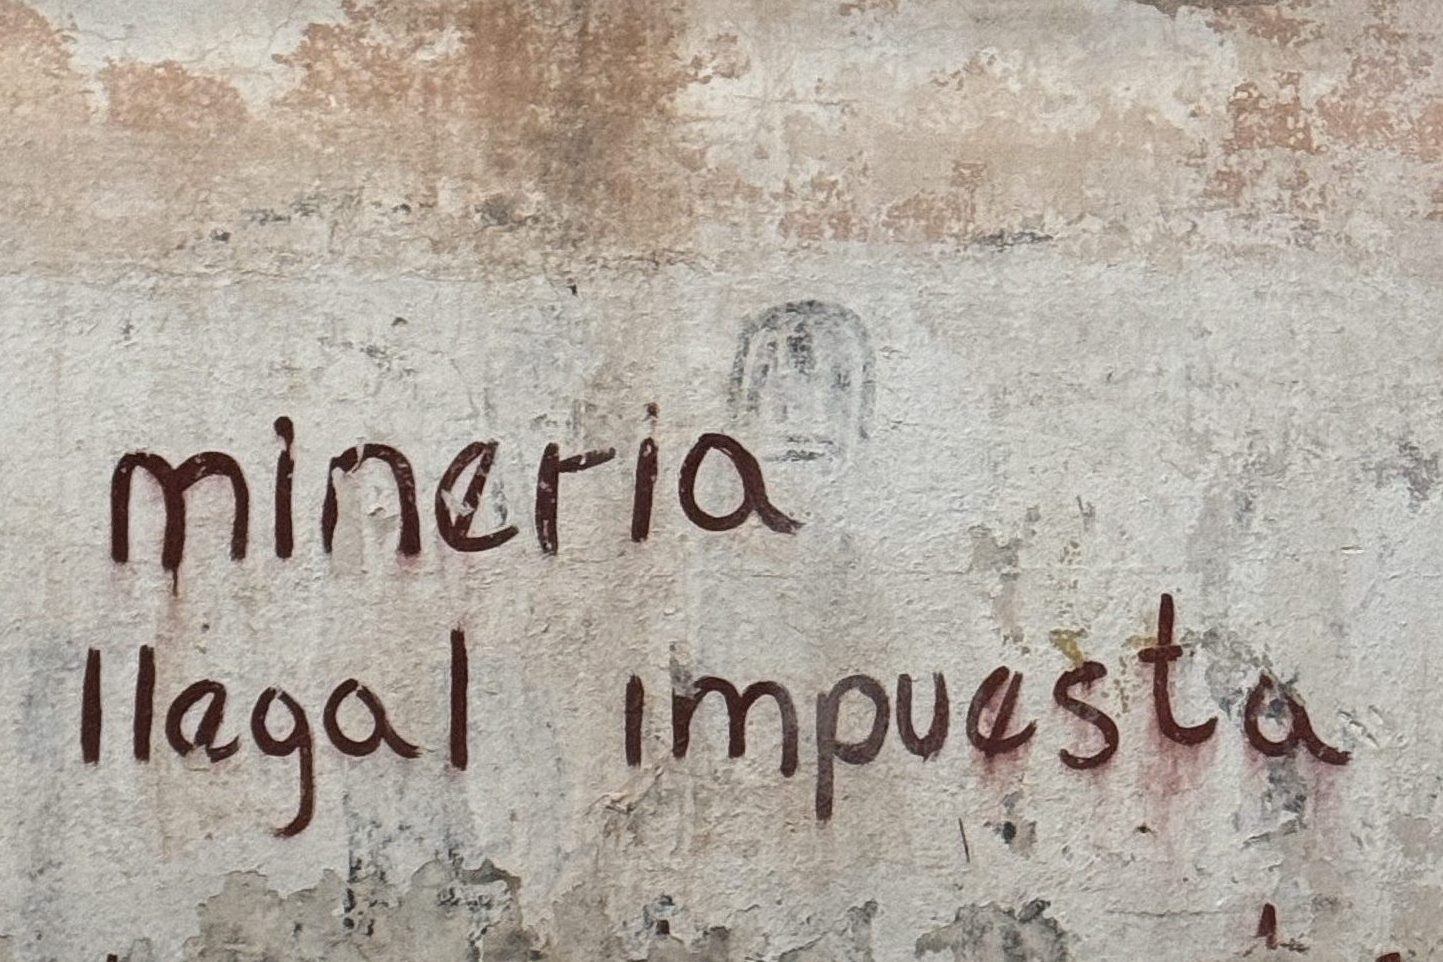 mineria
Ilegal impuesta